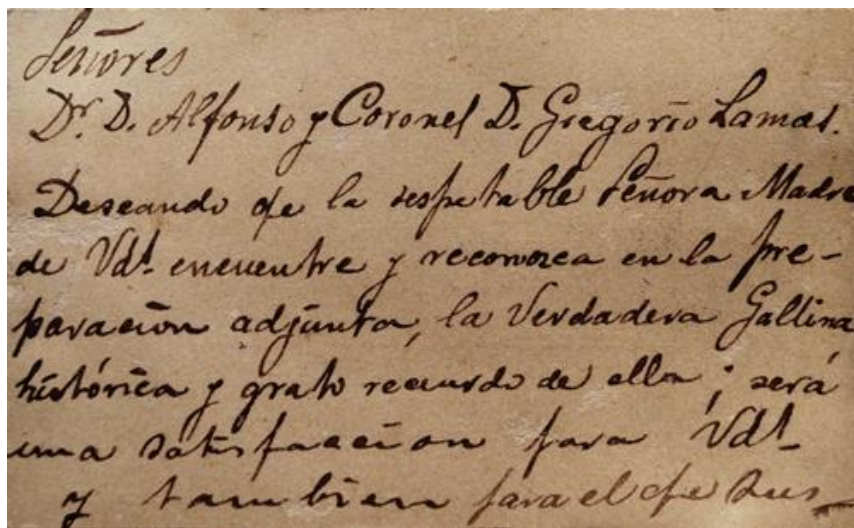 Señores
Dr. D. Alfonso y Coronel D. Gregorio Lamas.
Deseando qe la respetable Señora Madre
de Vds. encuentre y reconozca en la pre-
paracion adjunta, la Verdadera Gallina
histórica y grato recuerdo de ella; será
una satisfaccion para Vds.
y tambien para el qe sus-